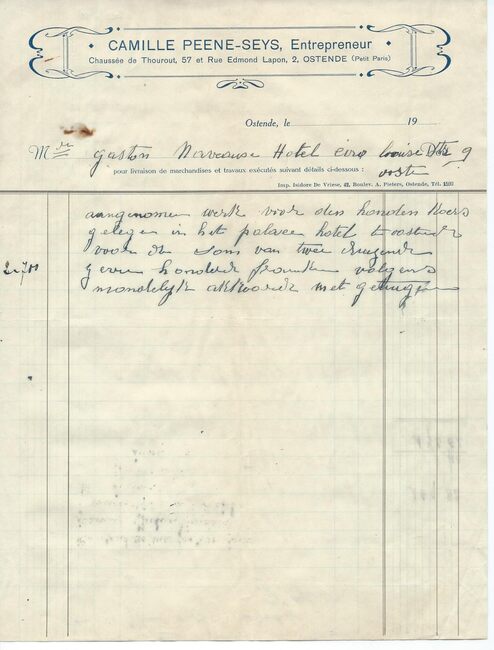 CAMILLE PEENE-SEYS, Entrepreneur
Chaussée de Thourout, 57 et Rue Edmond Lapon, 2, OSTENDE (Petit Paris)
Ostende, le 19
Mr gaston Hotel
pour livraison de marchandises et travaux exécutés suivant détails ci-dessous :
Imp. Isidore De Vriese, 42, Boulev. A. Pieters, Ostende, Tél.
aangenomen werk voor den honden koers
gelegen in het palace hotel t oostende
voor de som van twee duizend
2.700 zeven honderd franken volgens
mondelijk akkoord met